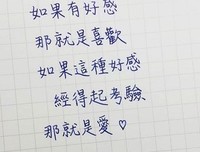 如果有好感
那就是喜歡
如果這種好感
經得起考驗
那就是愛♡